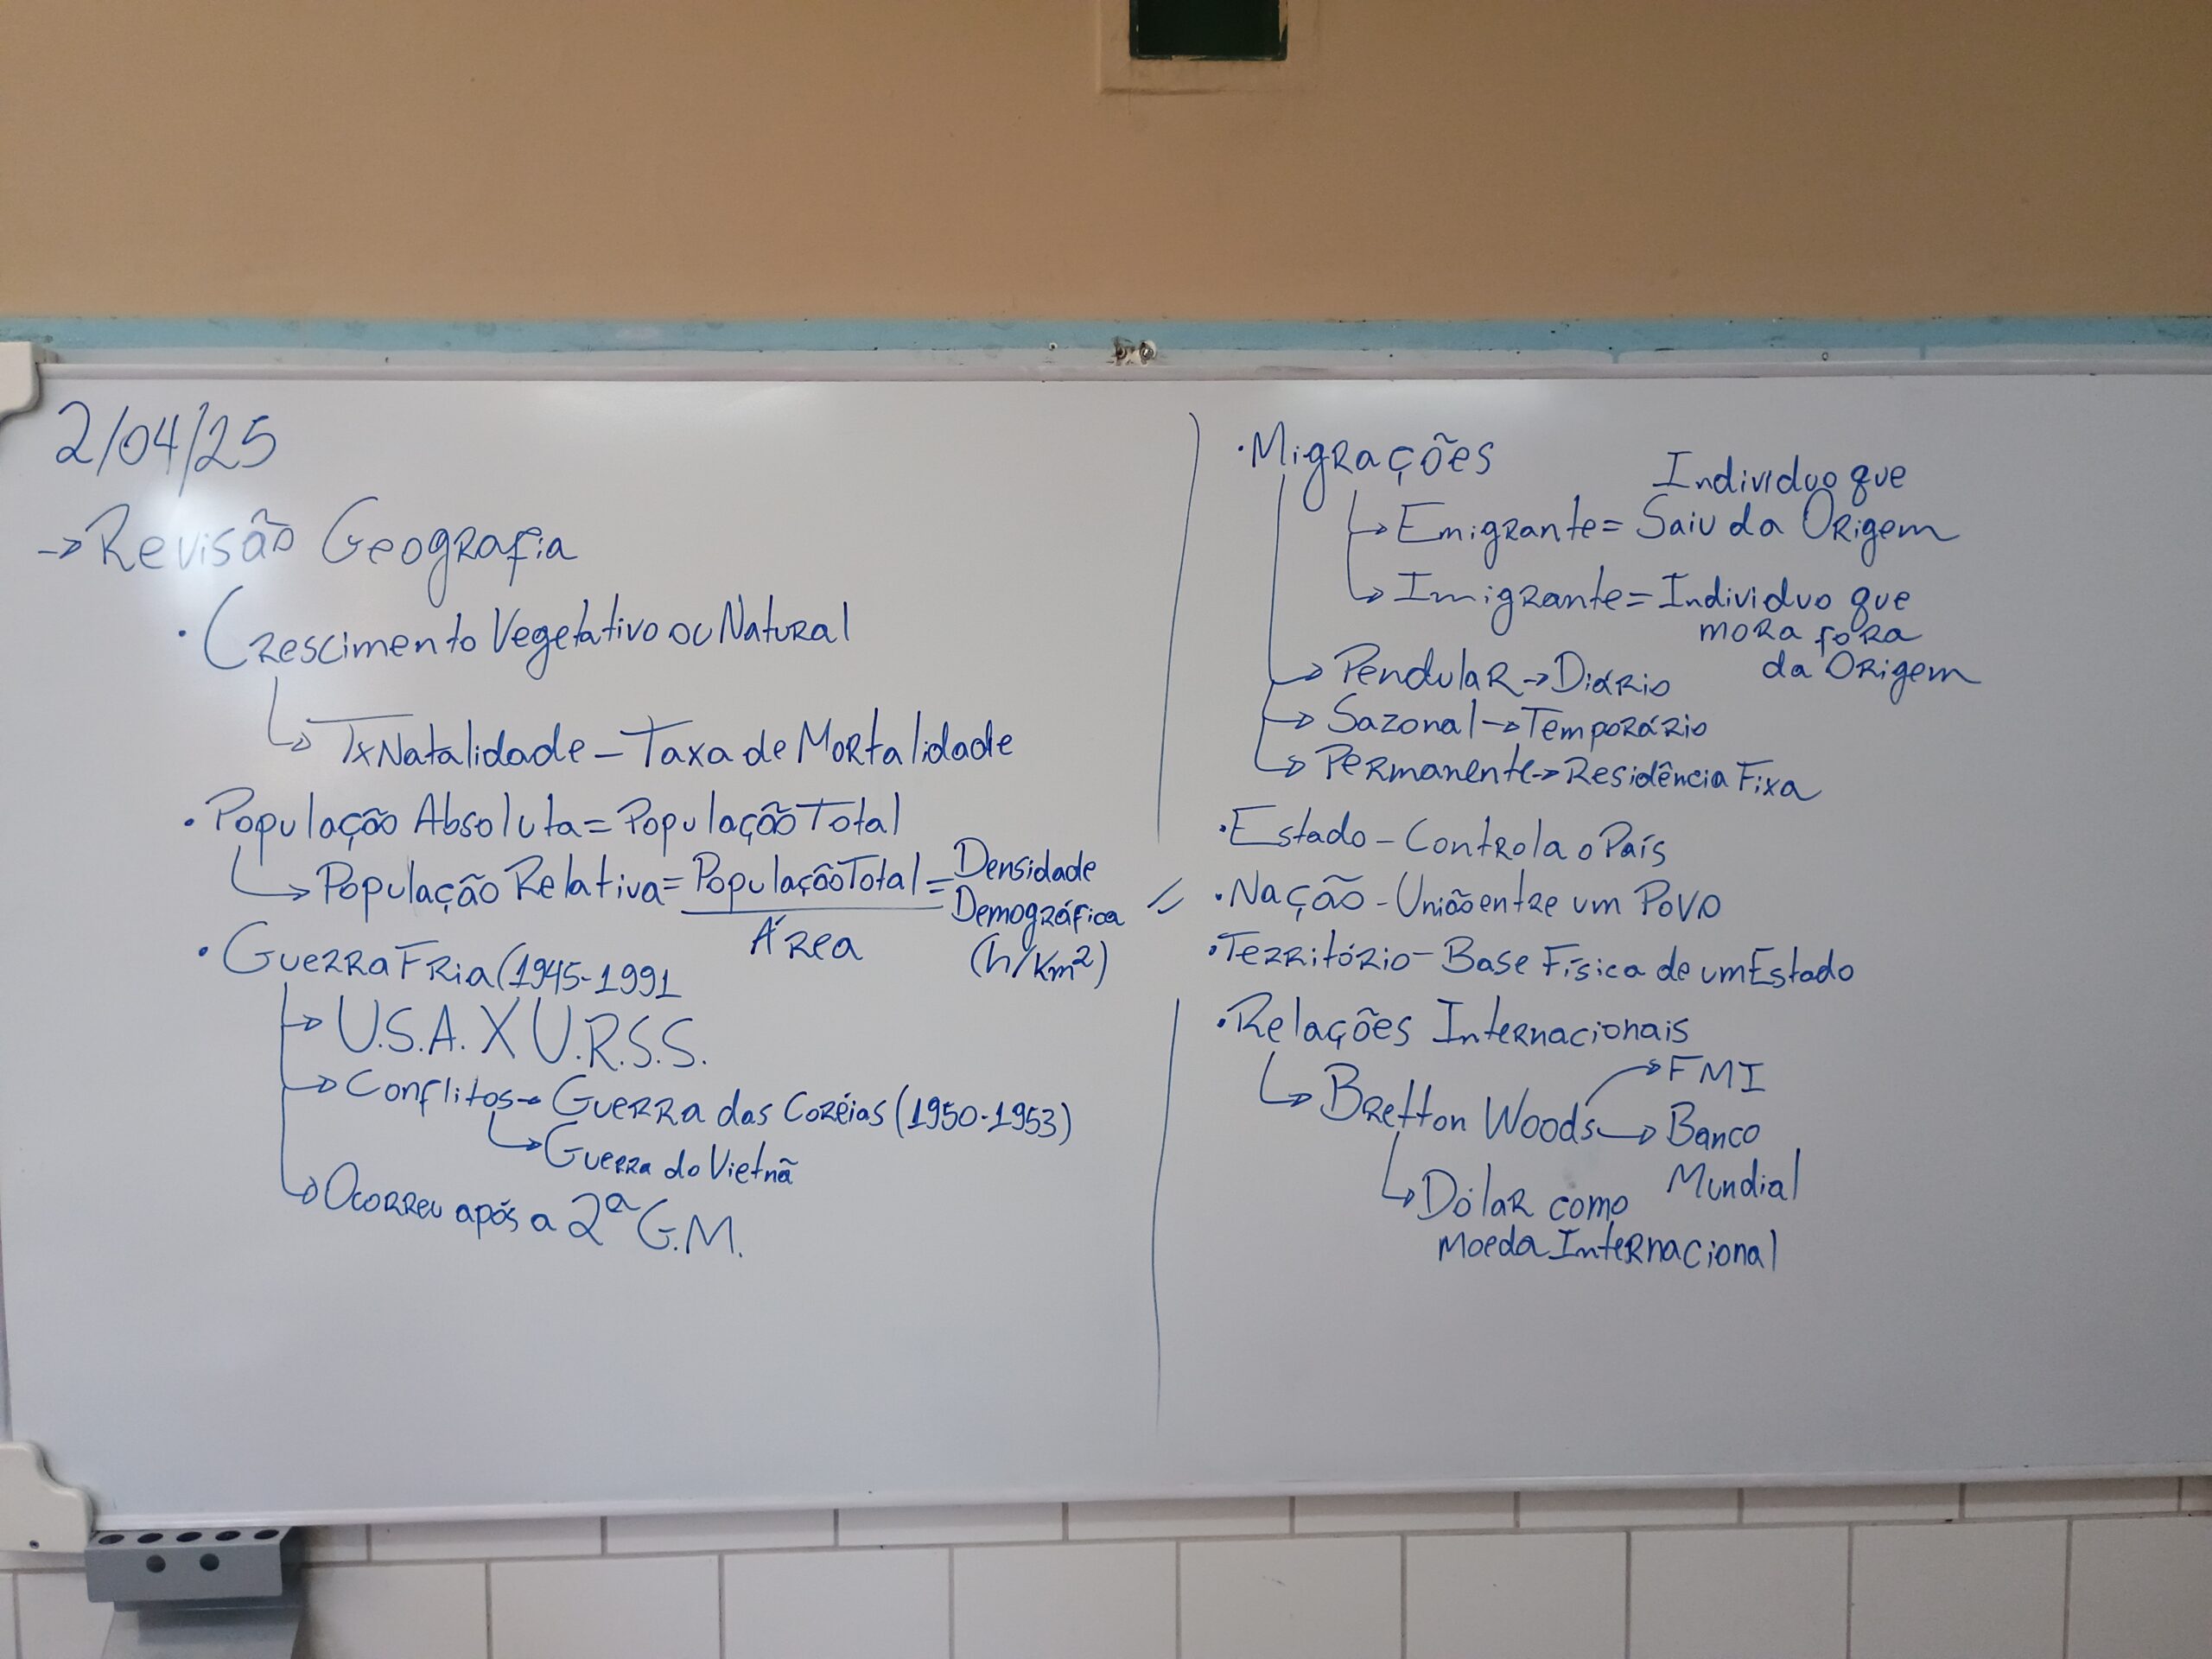 2/04/25
→ Revisão Geografia
• Crescimento Vegetativo ou Natural
↳ Tx Natalidade - Taxa de Mortalidade
• População Absoluta = População Total
↳ População Relativa = População Total = Densidade
Área
Demográfica
(h/Km²)
• Guerra Fria (1945-1991
→ U.S.A. X U.R.S.S.
→ Conflitos → Guerra das Coréias (1950-1953)
↳ Guerra do Vietnã
→ Ocorreu após a 2ª G.M.
• Migrações
Individuo que
→ Emigrante = Saiu da Origem
→ Imigrante = Individuo que
mora fora
da Origem
→ Pendular → Diário
→ Sazonal → Temporário
→ Permanente → Residência Fixa
• Estado - Controla o País
• Nação - União entre um Povo
• Território - Base Física de um Estado
• Relações Internacionais
→ FMI
↳ Bretton Woods → Banco
Mundial
↳ Dólar como
moeda Internacional